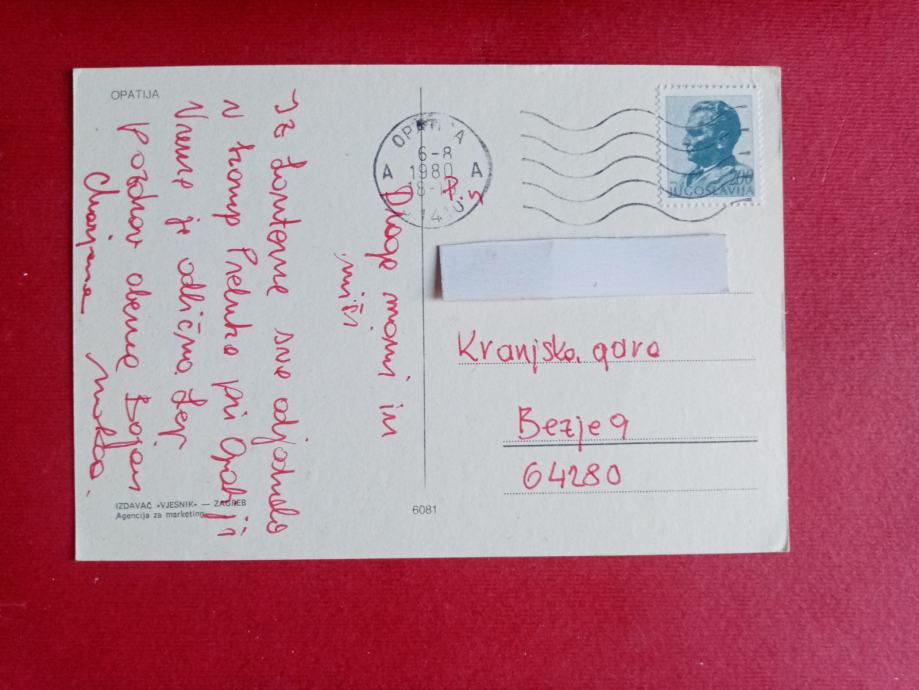 OPATIJA
Drage mami in
Iz Fontane sve odjadrale
v kamp Preluko pri Opatiji
Vreme je odlično
Pozdrav obema Bojan
OPATIJA
6-8
A 1980 A
P.g
200
JUGOSLAVIJA
Kranjska gora
Bezje 9
64280
IZDAVAČ «VJESNIK» — ZAGREB
Agencija za marketing
6081